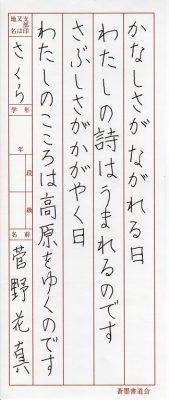 かなしさがながれる日
わたしの詩はうまれるのです
さぶしさがかがやく日
わたしのこころは高原をゆくのです
支部印又は地名
さくら
学年
年
段
級
名前
菅野花真
蒼墨書道会